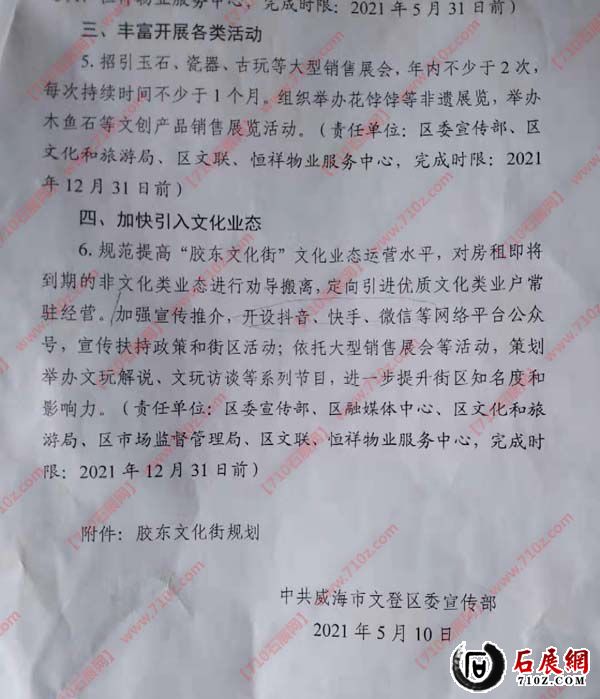 恒祥物业服务中心，完成时限：2021 年 5 月 31 日前）
三、丰富开展各类活动
5. 招引玉石、瓷器、古玩等大型销售展会，年内不少于 2 次，
每次持续时间不少于 1 个月。组织举办花饽饽等非遗展览，举办
木鱼石等文创产品销售展览活动。（责任单位：区委宣传部、区
文化和旅游局、区文联、恒祥物业服务中心，完成时限：2021
年 12 月 31 日前）
四、加快引入文化业态
6. 规范提高“胶东文化街”文化业态运营水平，对房租即将
到期的非文化类业态进行劝导搬离，定向引进优质文化类业户常
驻经营。加强宣传推介，开设抖音、快手、微信等网络平台公众
号，宣传扶持政策和街区活动；依托大型销售展会等活动，策划
举办文玩解说、文玩访谈等系列节目，进一步提升街区知名度和
影响力。（责任单位：区委宣传部、区融媒体中心、区文化和旅
游局、区市场监督管理局、区文联、恒祥物业服务中心，完成时
限：2021 年 12 月 31 日前）
附件：胶东文化街规划
中共威海市文登区委宣传部
2021 年 5 月 10 日
【710石展网】www.710z.com
石展網
710Z.COM